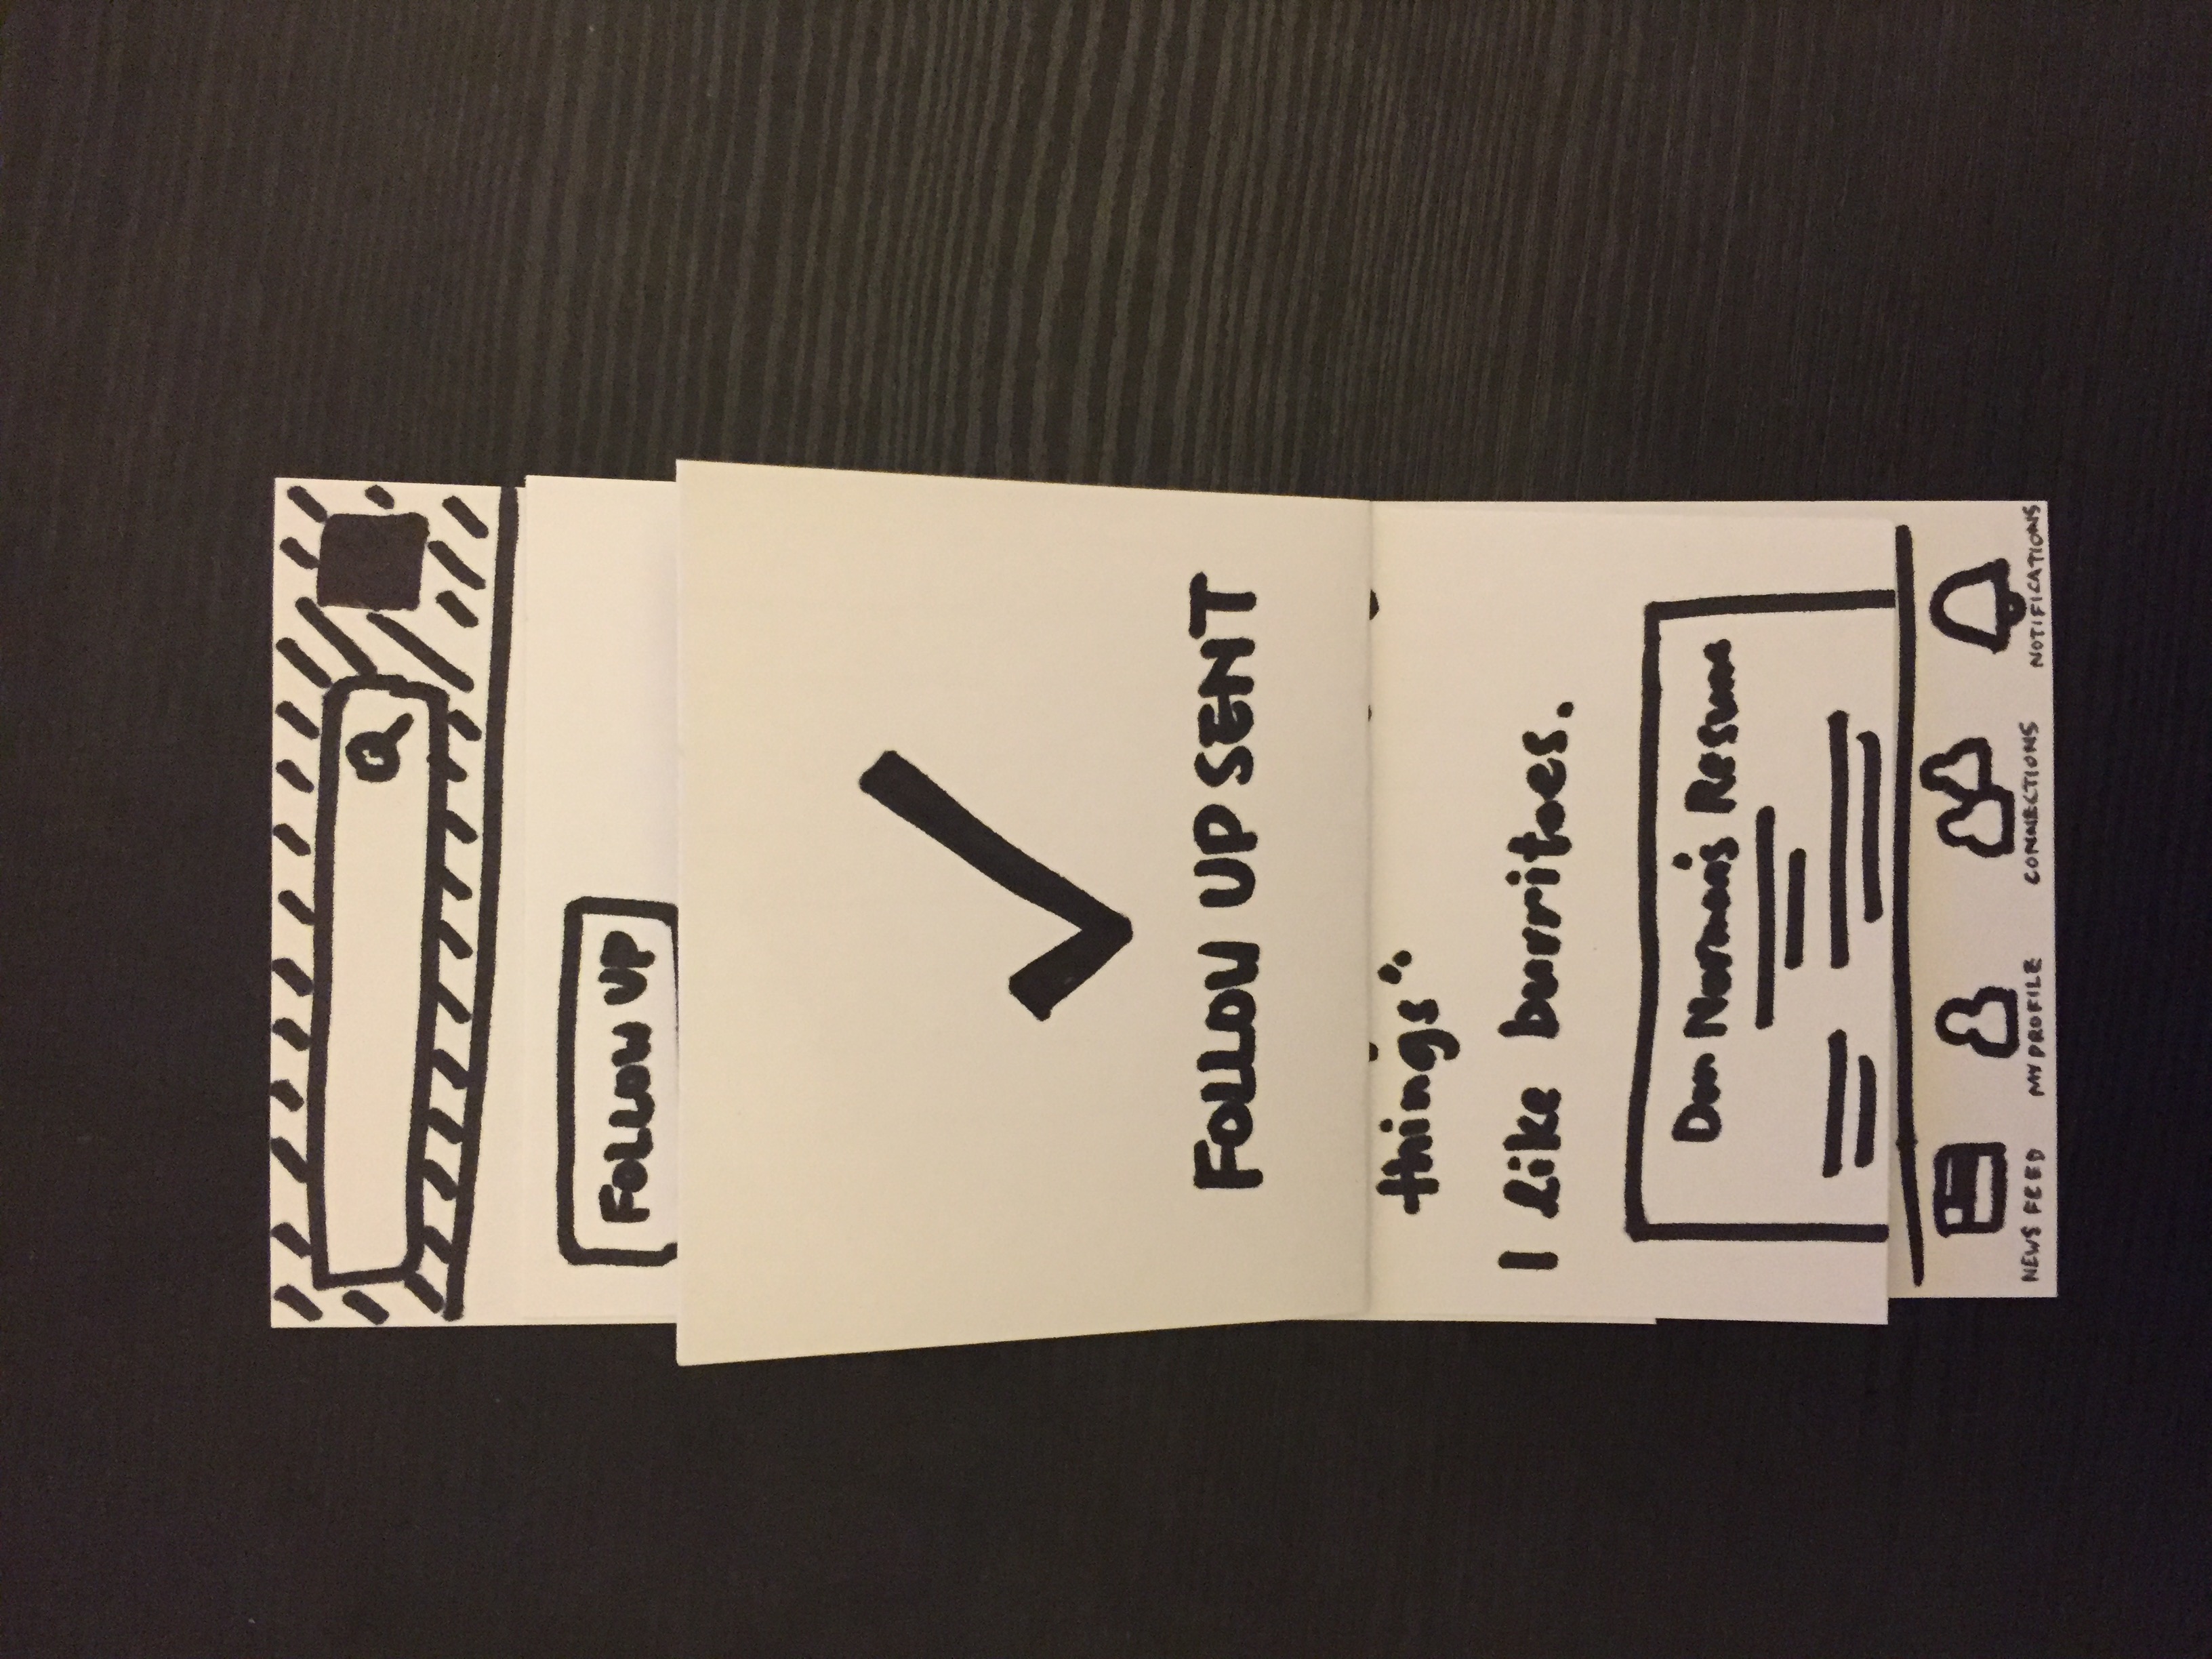 FOLLOW UP
FOLLOW UP SENT
things"
I like burritoes.
Don Norman's Resume
NEWS FEED
MY PROFILE
CONNECTIONS
NOTIFICATIONS